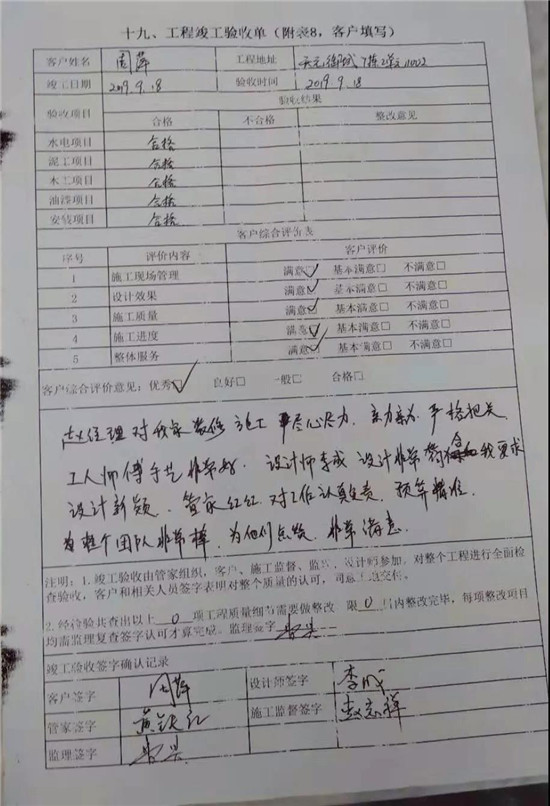 十九、工程竣工验收单（附表8，客户填写）
客户姓名 周萍 工程地址 天元御城7栋2单元1002
竣工日期 2019.9.18 验收时间 2019.9.18
验收项目 验收结果
合格 不合格 整改意见
水电项目 合格
泥工项目 合格
木工项目 合格
油漆项目 合格
安装项目 合格
客户综合评价表
序号 评价内容 客户评价
1 施工现场管理 满意☑ 基本满意□ 不满意□
2 设计效果 满意☑ 基本满意□ 不满意□
3 施工质量 满意☑ 基本满意□ 不满意□
4 施工进度 满意☑ 基本满意□ 不满意□
5 整体服务 满意☑ 基本满意□ 不满意□
客户综合评价意见：优秀☑ 良好□ 一般□ 合格□
赵经理对我家装修施工尽心尽力，亲力亲为，严格把关，
工人师傅手艺非常好。设计师李成设计非常符合我要求
设计新颖，管家红红对工作认真负责，预算精准，
为整个团队非常棒，为他们点赞，非常满意。
注明：1.竣工验收由管家组织，客户、施工监督、监理、设计师参加，对整个工程进行全面检
查验收，客户和相关人员签字表明对整个质量的认可，可
交付。
2.经检验共查出以上 0 项工程质量细节需要做整改 限 0 日内整改完毕，每项整改项目
均需监理复查签字认可才算完成。监理签字
竣工验收签字确认记录
客户签字 周萍 设计师签字 李成
管家签字 黄 红 施工监督签字 赵志祥
监理签字